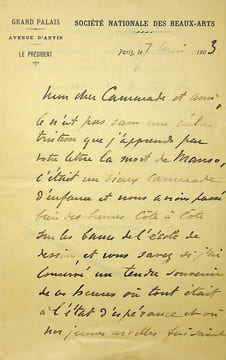 GRAND PALAIS
AVENUE D'ANTIN
LE PRÉSIDENT
SOCIÉTÉ NATIONALE DES BEAUX-ARTS
Paris, le 7 1903
Mon cher Camarade et ami,
ce n'est pas sans une
tristesse que j'apprends par
votre lettre la mort de Manso,
c'était un vieux camarade
d'enfance et nous avons passé
bien des heures côte à côte
sur les bancs de l'école de
dessin, et vous savez si j'ai
conservé un tendre souvenir
de ces heures où tout était
à l'état d'espérance et où
nos jeunes